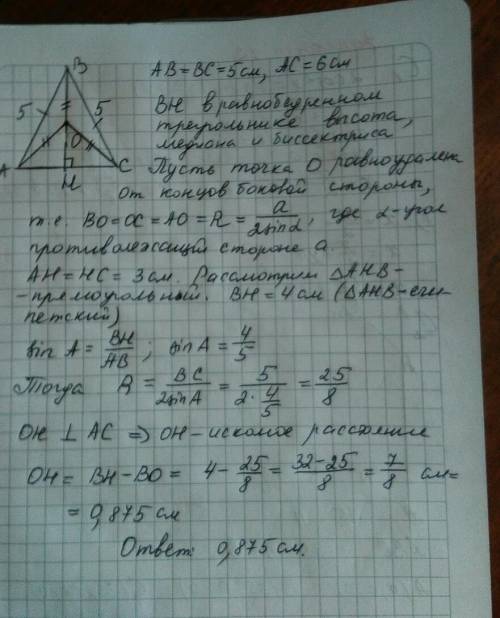 B
AB = BC = 5 см, AC = 6 см
5
5
BH в равнобедренном
треугольнике высота,
медиана и биссектриса
O
A
C
H
Пусть точка O равноудалена
от концов боковой стороны,
т.е. BO = OC = AO = R = a / 2sinα, где α-угол
противолежащий стороне a.
AH = HC = 3 см. Рассмотрим △AHB-
-прямоугольный. BH = 4 см (△AHB-еги-
петский)
sin A = BH / AB ; sin A = 4/5
Тогда R = BC / 2sinA = 5 / (2·4/5) = 25/8
OH ⊥ AC ⇒ OH - искомое расстояние
OH = BH - BO = 4 - 25/8 = (32-25)/8 = 7/8 см =
= 0,875 см
Ответ: 0,875 см.